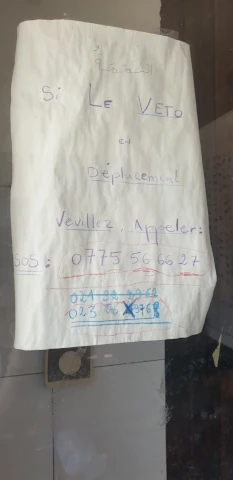 Si Le VETO
et
Déplacement
Veuillez, Appeler:
SOS: 0775 56 66 27